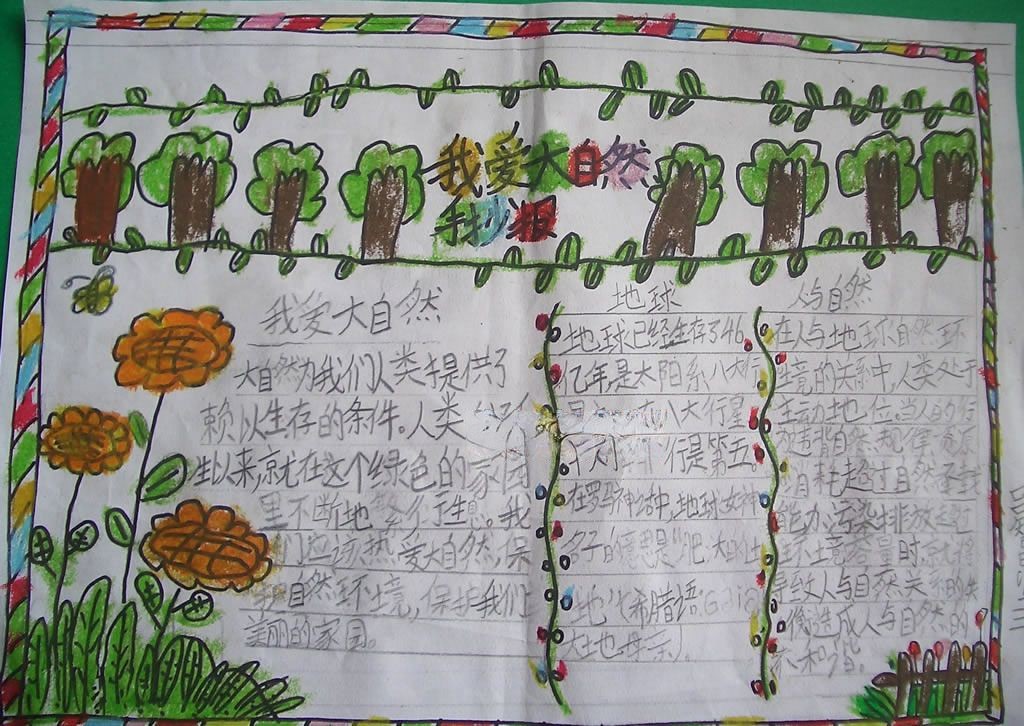 我爱大自然
手抄报
我爱大自然
大自然为我们人类提供了
赖以生存的条件。人类
生以来,就在这个绿色的家园
里不断地繁衍生息。我
们应该热爱大自然,保
护自然环境,保护我们
美丽的家园。
地球
地球已经生存了46
亿年,是太阳系八大行
八大行星
行是第五。
在罗马神话中,地球女神
名子的意思是“肥大的土
地”(希腊语:Gaia
大地母亲)。
人与自然
在人与地球自然环
境的关系中,人类处于
主动地位。当人的行
为违背自然规律、资源
消耗超过自然承载
能力、污染排放超过
环境容量时,就将
导致人与自然关系的失
衡,造成人与自然的
不和谐。